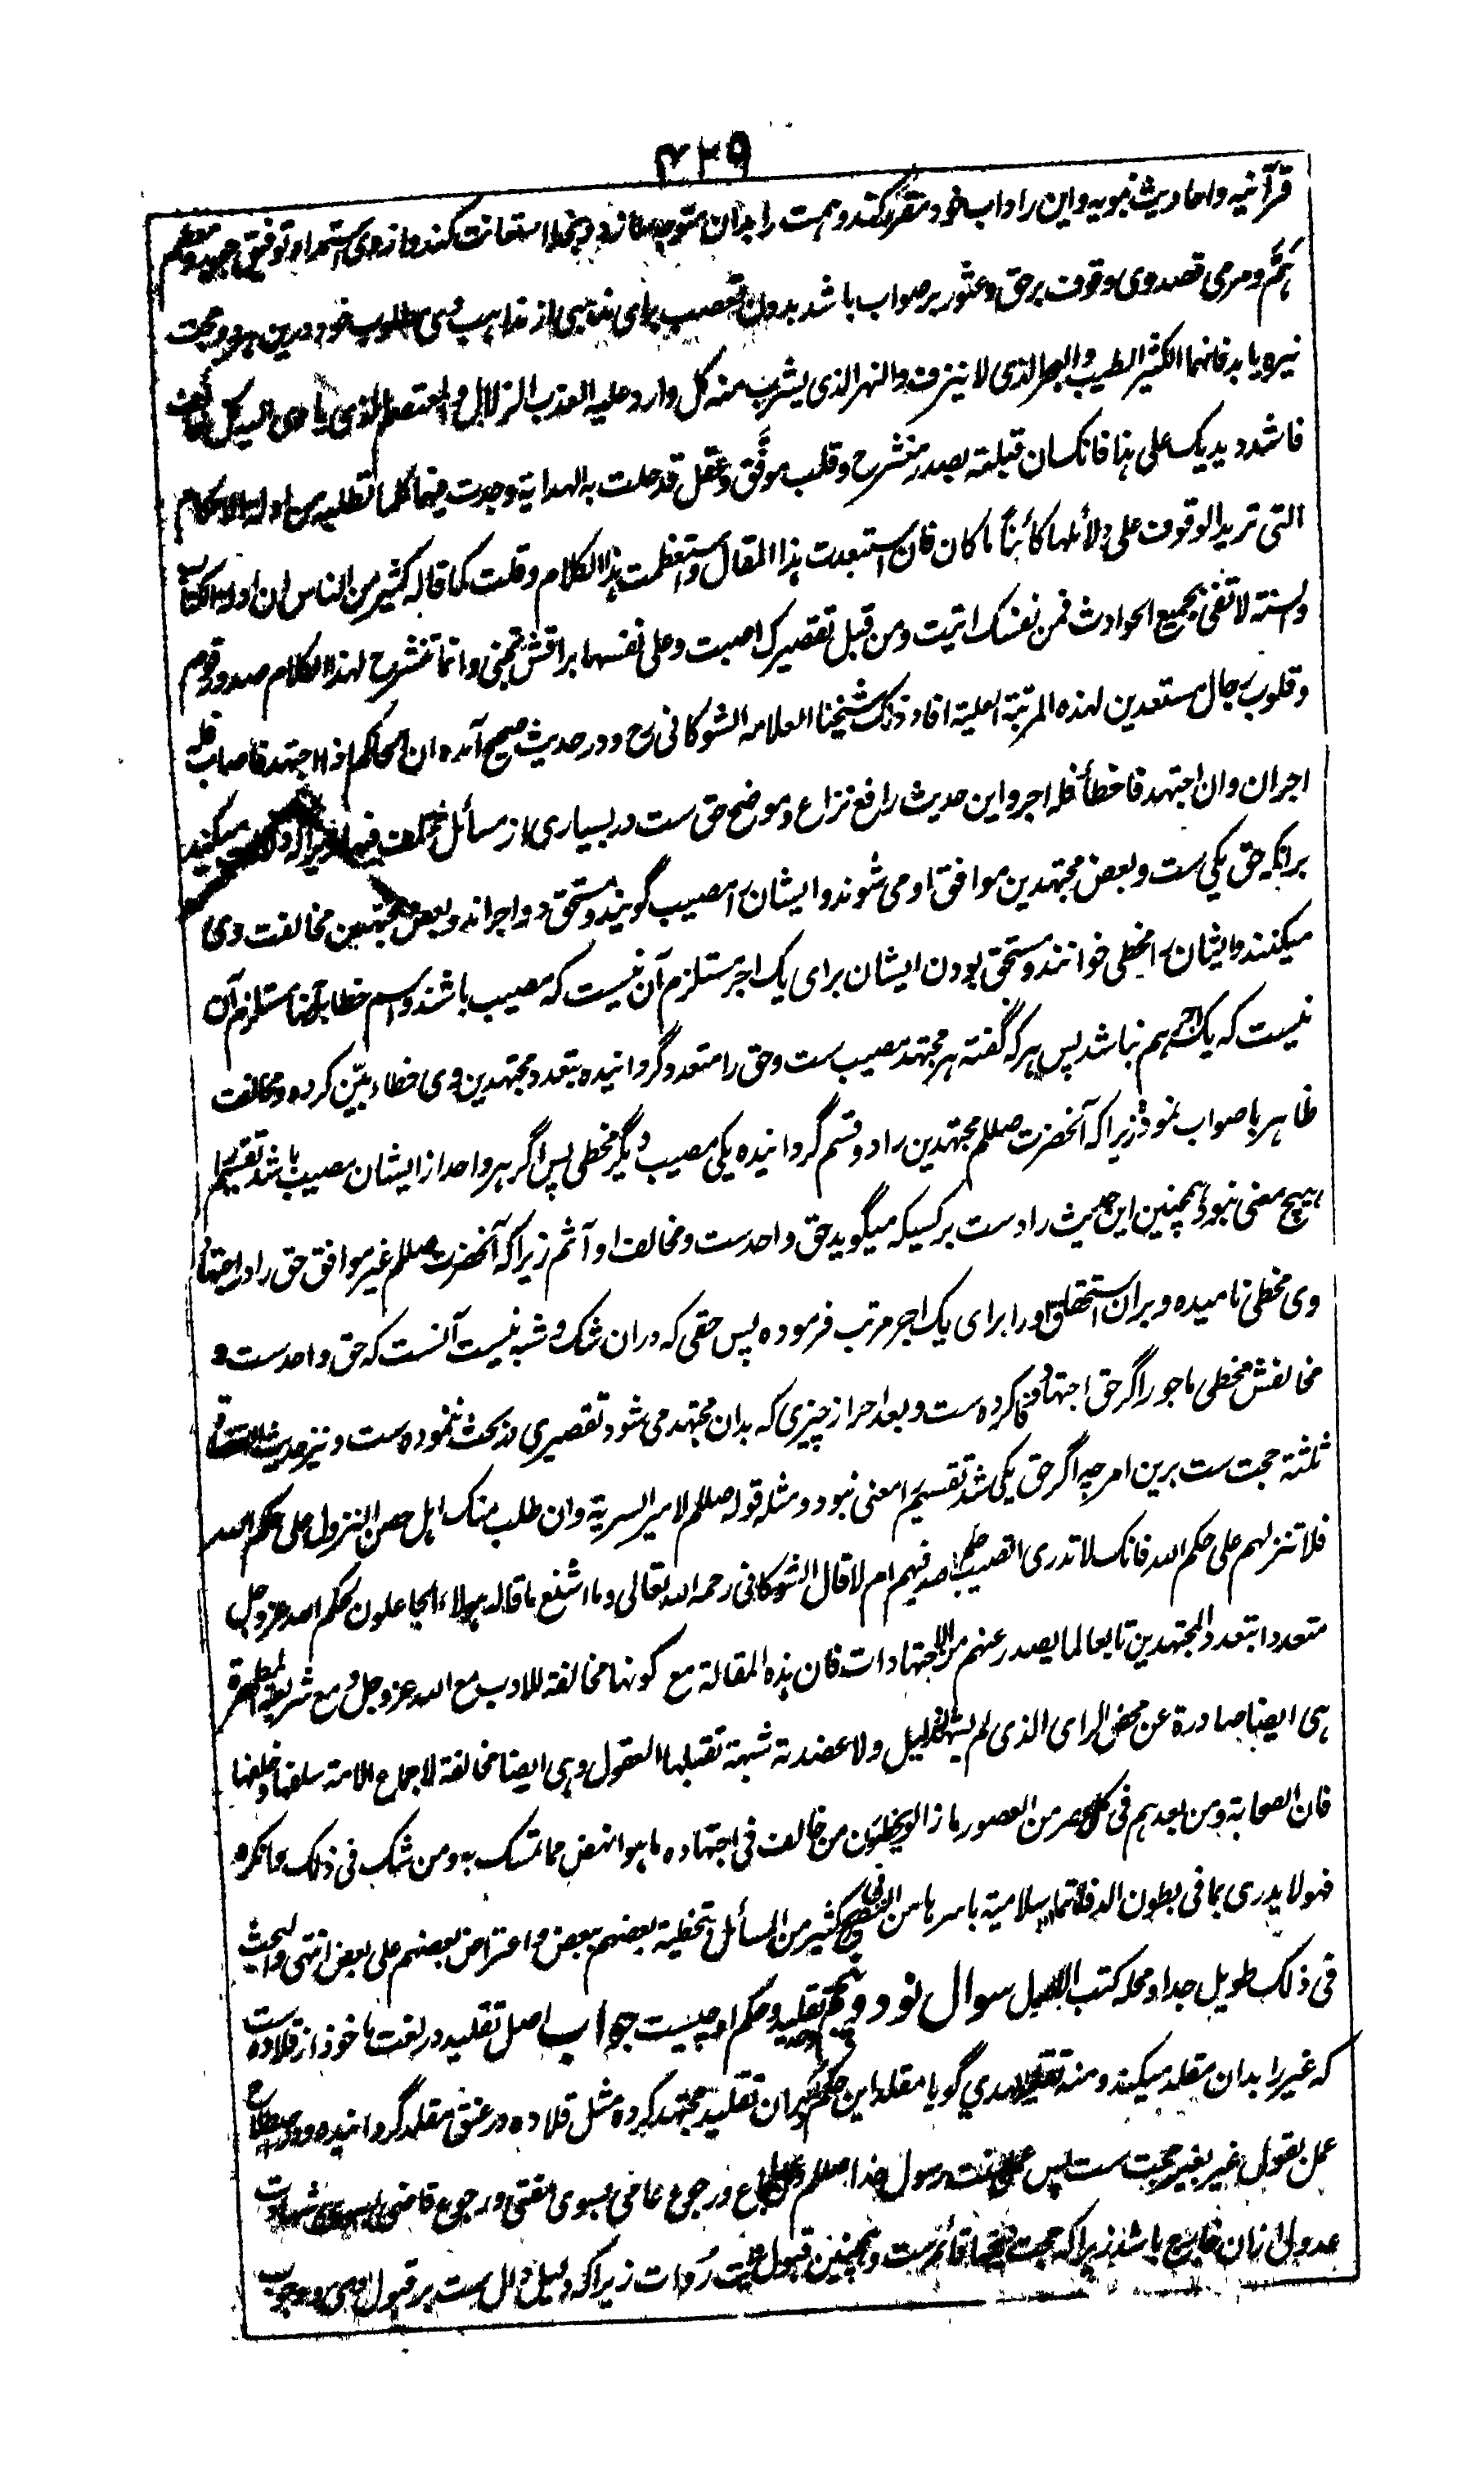 ۴۲۹
قرآنیه و احادیث نبویه و این را داب خود مقرر کند و همت را بدان متوجه سازد و بخدا استعانت کند و از وی استمداد توفیق جوید و معظم
هَم و مرمی قصد وی وقوف بر حق و عثور بر صواب باشد بدون تعصب برای مذهبی از مذاهب وی مطلوب خود درین هر دو حجت
نیره یابد فانهما الکثیر الطیب والبحر الذی لا ینزف والنهر الذی یشرب منه کل وارد علیه العذب الزلال والمعتصم الذی یاوی الیه کل خائف
فاشدد یدیک علی هذا فانک ان قبلته بصدر منشرح و قلب موفَّق و عقل قد حلت به الهدایة وجدت فیهما کلما تطلبه من ادلة الاحکام
التی ترید الوقوف علی دلائلها کائنًا ما کان فان استبعدت هذا المقال و استعظمت هذا الکلام و قلت کما قاله کثیر من الناس ان ادلة الکتاب
والسنة لا تفی بجمیع الحوادث فمن نفسک اتیت و من قبل تقصیرک اصبت و علی نفسها براقش تجنی و انما تنشرح لهذا الکلام صدور قوم
و قلوب رجال مستعدین لهذه المرتبة العلیة افاد ذلک شیخنا العلامه الشوکانی رح و در حدیث صحیح آمده ان الحاکم اذا اجتهد فاصاب فله
اجران و ان اجتهد فاخطأ فله اجر و این حدیث رافع نزاع و موضح حق ست در بسیاری از مسائل مختلف فیها میکند
برانکه حق یکی ست و بعض مجتهدین موافق او می شوند و ایشان را مصیب گویند و مستحق دو اجراند و بعض مجتهدین مخالفت وی
میکنند و ایشان را مخطی خوانند و مستحق بودن ایشان برای یک اجر مستلزم آن نیست که مصیب باشند و اسم خطا بر آنها مستلزم آن
نیست که یک اجر هم نباشد پس هر که گفته هر مجتهد مصیب ست و حق را متعدد گردانیده بتعدد مجتهدین وی خطاء بیّن کرده و مخالفت
ظاهر با صواب نموده زیرا که آنحضرت صللم مجتهدین را دو قسم گردانیده یکی مصیب دیگر مخطی پس اگر هر واحد از ایشان مصیب باشد تقسیم را
هیچ معنی نبود و همچنین این حدیث را دست بر کسیکه میگوید حق واحد ست و مخالف او آثم زیرا که آنحضرت صللم غیر موافق حق را در اجتهاد
وی مخطی نامیده و بران استحقاق او را برای یک اجر مرتب فرموده پس حقی که دران شک و شبه نیست آنست که حق واحد ست و
مخالفش مخطی ماجور اگر حق اجتهاد وفا کرده ست و بعد احراز چیزی که بدان مجتهد می شود تقصیری در بحث ننموده ست و نیز حدیث القضاة
ثلثة حجت ست برین امر چه اگر حق یکی شد تقسیم را معنی نبود و مثله قوله صللم لامیر السریة و ان طلب منک اهل حصن النزول علی حکم الله
فلا تنزلهم علی حکم الله فانک لا تدری اتصیب حکم الله فیهم ام لا قال الشوکانی رحمه الله تعالی و ما اشنع ما قاله هؤلاء الجاعلون لحکم الله عز و جل
متعددا بتعدد المجتهدین تابعا لما یصدر عنهم من الاجتهادات فان هذه المقالة مع کونها مخالفة للادب مع الله عز و جل و مع شریعته المطهرة
هی ایضا صادرة عن محض الرای الذی لم یشهد له دلیل ولا عضدته شبهة تقبلها العقول و هی ایضا مخالفة لاجماع الامة سلفها و خلفها
فان الصحابة و من بعدهم فی کل عصر من العصور ما زالوا یخطئون من خالف فی اجتهاده ما هو انهض مما تمسک به و من شک فی ذلک و انکره
فهو لا یدری بما فی بطون الدفاتر الاسلامیة باسرها من التصریح فی کثیر من المسائل بتخطیة بعضهم بعض و اعتراض بعضهم علی بعض انتهی والبحث
فی ذلک طویل جدا و محله کتب الاصول سوال نود و پنجم تقلید و حکم او چیست جواب اصل تقلید در لغت ماخوذ از قلاده ست
که غیر را بدان مقلد میکند و منه تقلید الهدی گویا مقلد این حکم را که دران تقلید مجتهد کرده مثل قلاده در عنق مقلد گردانیده و در اصطلاح
عمل بقول غیر بغیر حجت ست پس عمل بسنت رسول خدا صللم و اجماع و رجوع عامی بسوی مفتی و رجوع قاضی بسوی شهادت
عدول ازان خارج باشد زیرا که حجت قائم ست و همچنین قبول روایت رُوات زیرا که دلیل دال ست بر قبول وی و وجوب